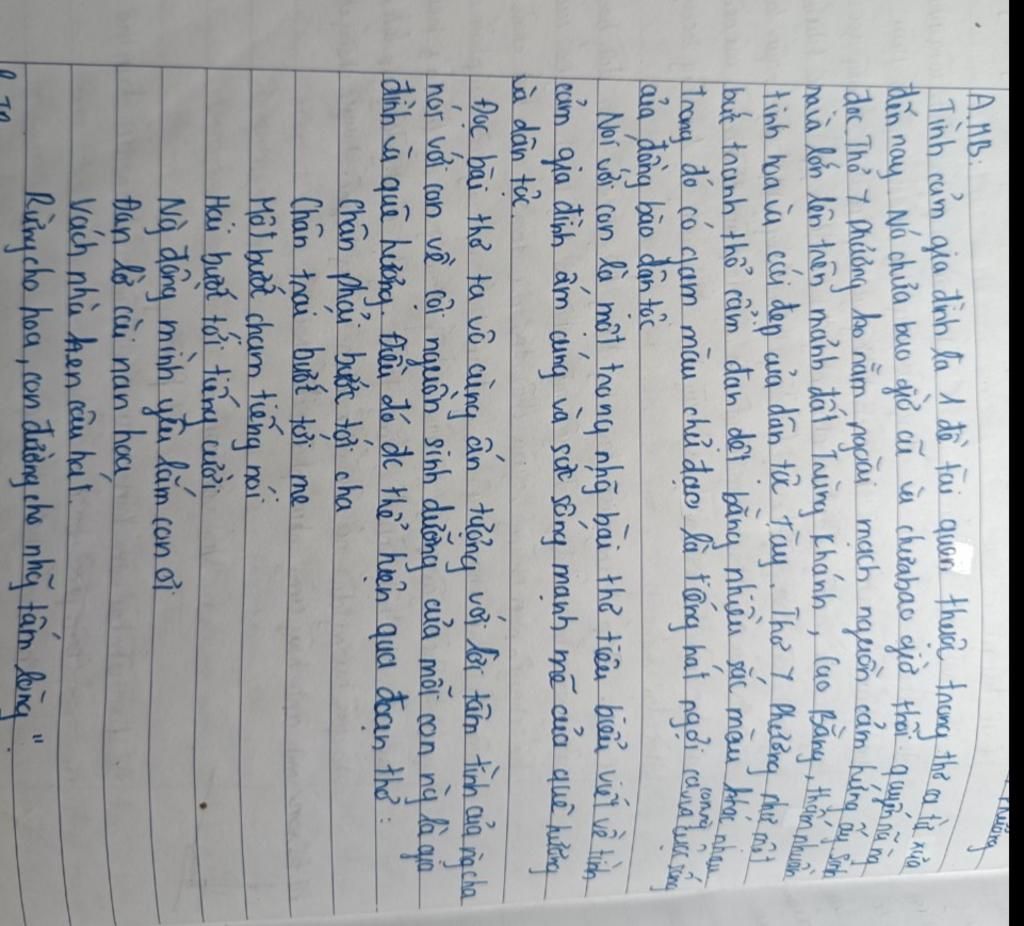 Phương
A. MB.
Tình cảm gia đình là 1 đề tài quen thuộc trong thơ ca từ xưa
đến nay. Nó chưa bao giờ cũ và chưa bao giờ thôi quyến rũ ng
đọc. Thơ Y Phương ko nằm ngoài mạch nguồn cảm hứng ấy. Sinh
ra và lớn lên trên mảnh đất Trùng Khánh, Cao Bằng, thấm nhuần
tinh hoa và cái đẹp của dân tộc Tày. Thơ Y Phương như một
bức tranh thổ cẩm đan dệt bằng nhiều sắc màu khác nhau,
trong đó có gam màu chủ đạo là tiếng hát ngợi ca con ng và cuộc sống
của đồng bào dân tộc
Nói với con là một trong nhg bài thơ tiêu biểu viết về tình
cảm gia đình ấm cúng và sức sống mạnh mẽ của quê hương
và dân tộc.
Đọc bài thơ ta vô cùng ấn tượng với lời tâm tình của ng cha
nói với con về cội nguồn sinh dưỡng của mỗi con ng là gia
đình và quê hương. Điều đó đc thể hiện qua đoạn thơ:
Chân phải bước tới cha
Chân trái bước tới mẹ
Một bước chạm tiếng nói
Hai bước tới tiếng cười
Ng đồng mình yêu lắm con ơi
Đan lờ cài nan hoa
Vách nhà ken câu hát
Rừng cho hoa, con đường cho nhg tấm lòng"